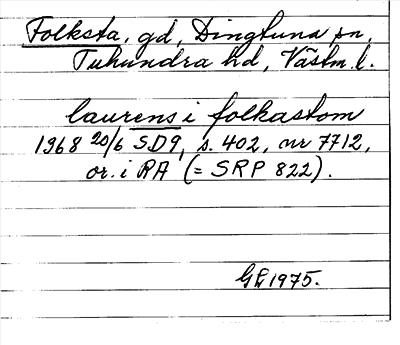 Folksta, gd, Dingtuna sn,
Tuhundra hd, Västm. l.
laurens i folkastom
1968 20/6 SD9, s. 402, nr 7712,
or. i RA (= SRP 822).
GL 1975.